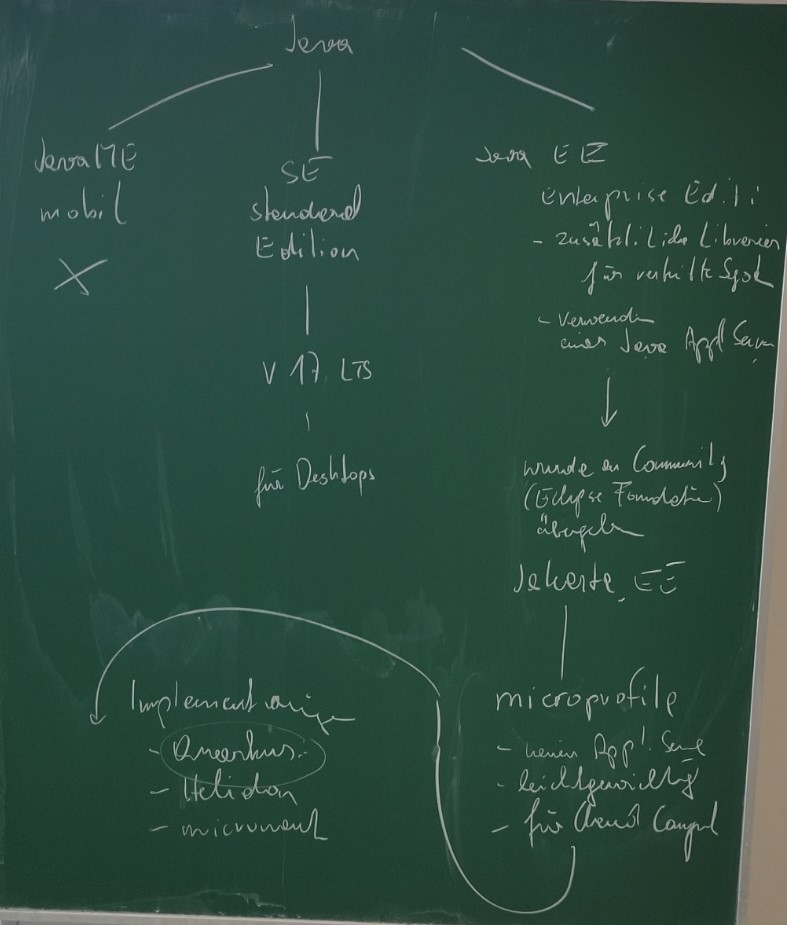 Java
Java ME
mobil
X
SE
standard
Edition
V 17 LTS
für Desktops
Java EE
Enterprise Editi
- zusätzliche Librerien
für verteilte Syst
- Verwendn
eines Java Appl Serv
wurde an Community
(Eclipse Foundatio)
übergeben
Jakarta EE
microprofile
- keinen Appl. Serv
- leichtgewichtig
- für Cloud Comput
Implementierungen
- Quarkus
- Helidon
- micronaut